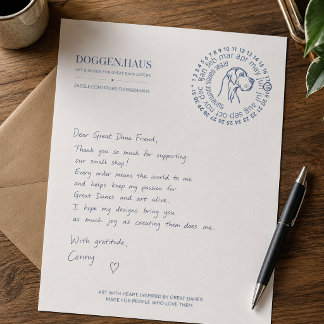 DOGGEN.HAUS
ART & DESIGN FOR GREAT DANE LOVERS
ZAZZLE.COM/STORE/DOGGENHAUS
jan feb mar apr may jun jul aug sep oct nov dec
Dear Great Dane Friend,
Thank you so much for supporting
our small shop!
Every order means the world to me
and helps keep my passion for
Great Danes and art alive.
I hope my designs bring you
as much joy as creating them does me.
With gratitude,
Conny
ART WITH HEART, INSPIRED BY GREAT DANES.
MADE FOR PEOPLE WHO LOVE THEM.